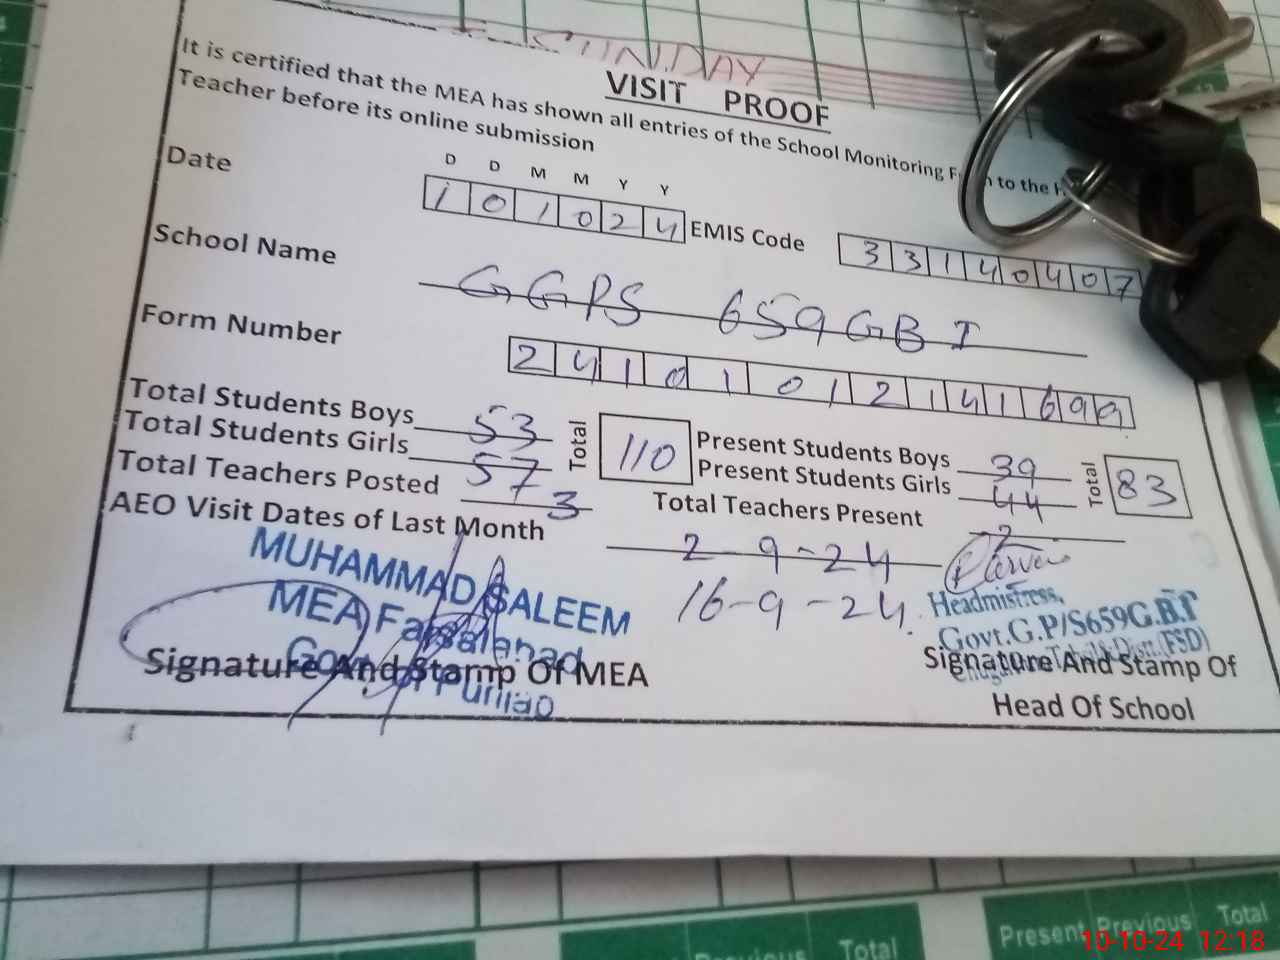 SUNDAY
VISIT PROOF
It is certified that the MEA has shown all entries of the School Monitoring to the
Teacher before its online submission
D D M M Y Y
Date 1 0 1 0 2 4 EMIS Code 3 3 1 4 0 4 0 7
School Name GGPS 659 GB I
Form Number 2 4 1 0 1 0 1 2 1 4 1 6 9 9
Total Students Boys 53 Total 110 Present Students Boys 39 Total 83
Total Students Girls 57 Present Students Girls 44
Total Teachers Posted 3 Total Teachers Present 2
AEO Visit Dates of Last Month 2-9-24
16-9-24
MUHAMMAD SALEEM
MEA Faisalabad
Govt of Punjab
Signature And Stamp Of MEA
Headmistress,
Govt.G.P/S659G.B.I
(FSD)
Signature And Stamp Of
Head Of School
Present Previous Total
Total
10-10-24 12:18